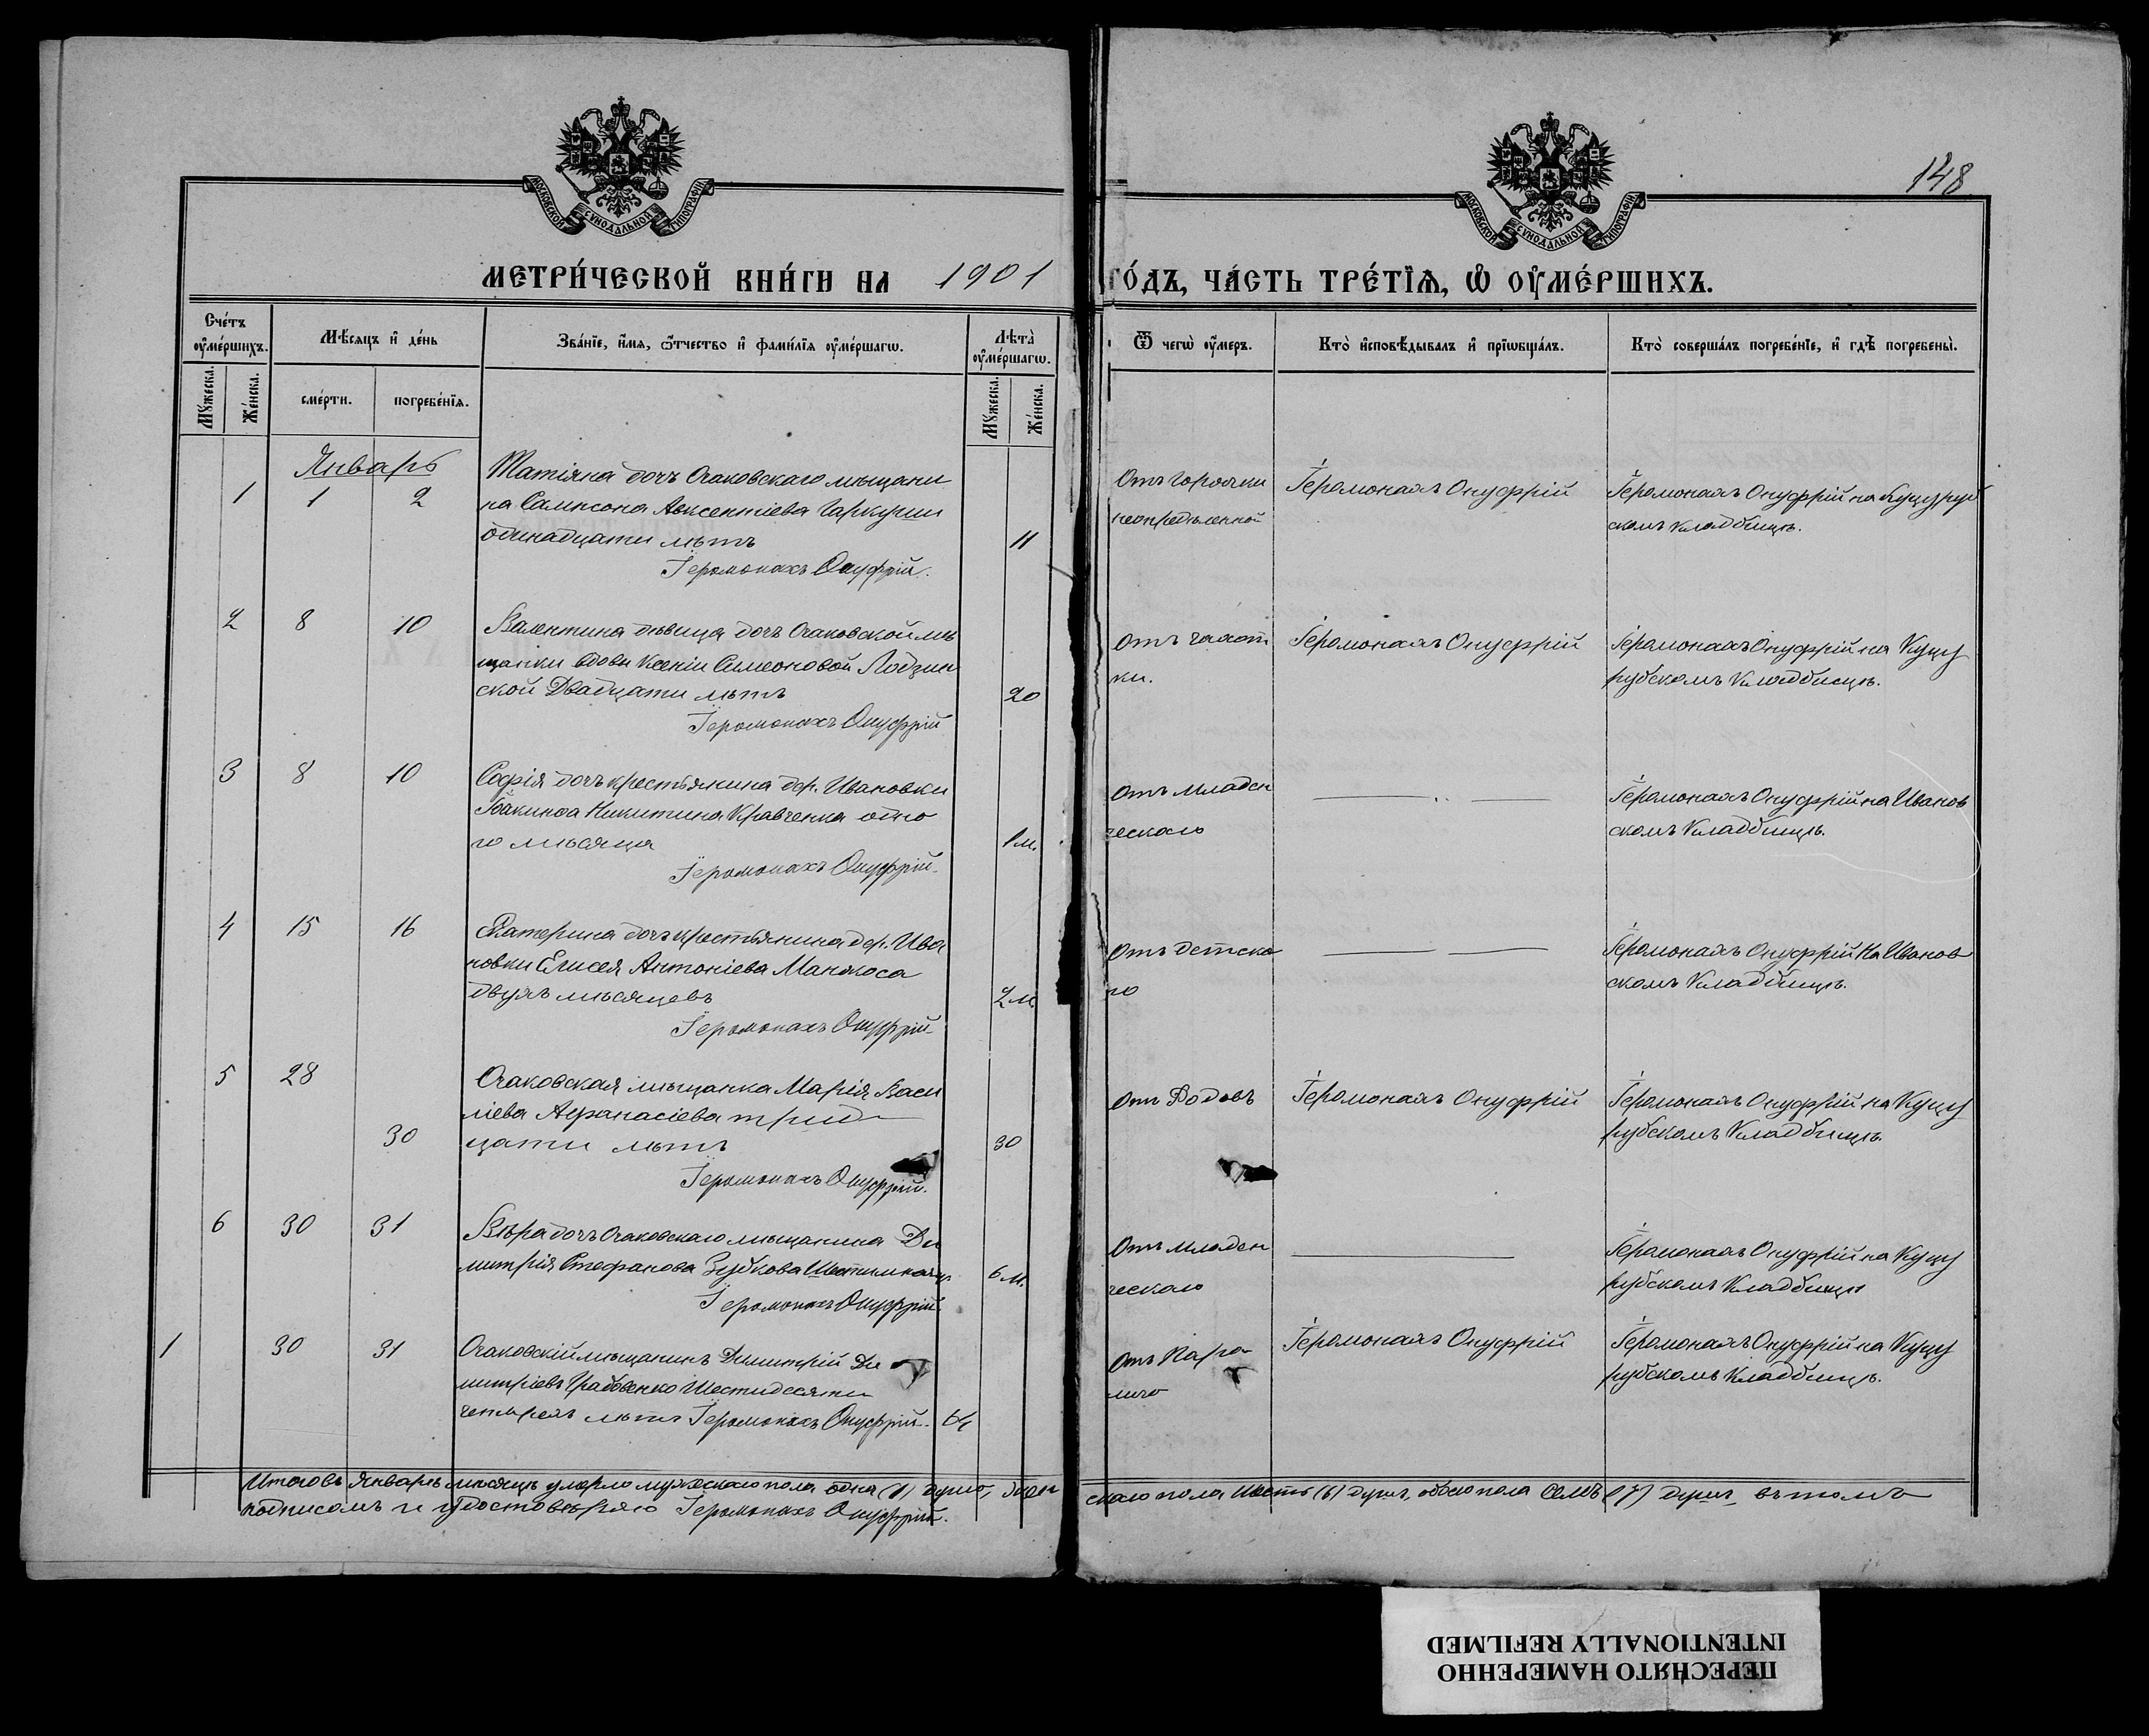 148
МОСКОВСКОЙ СѴНОДАЛЬНОЙ ТИПОГРАФІИ
МОСКОВСКОЙ СѴНОДАЛЬНОЙ ТИПОГРАФІИ
МЕТРИ́ЧЕСКОЙ КНИ́ГИ НА 1901 ГО́ДЪ, ЧА́СТЬ ТРЕ́ТІѦ, Ѡ҆ ОУ҆МЕ́РШИХЪ.
Сче́тъ оу҆ме́ршихъ.
Мѣ́сяцъ и҆ де́нь
Зва́нїе, и҆́мя, ѻ҆́тчество и҆ фами́лїя оу҆ме́ршагѡ.
Лѣта̀ оу҆ме́ршагѡ.
Ѿ чегѡ̀ оу҆́меръ.
Кто̀ и҆сповѣ́дывалъ и҆ прїѡбща́лъ.
Кто̀ соверша́лъ погребе́нїе, и҆ гдѣ̀ погребены̀.
Мꙋ́жеска.
Же́нска.
сме́рти.
погребе́нїя.
Мꙋ́жеска.
Же́нска.
Январь
1 1 2
Татіяна дочъ Очаковскаго мѣщани
на Сампсона Авксентіева
одинадцати лѣтъ
11
Іеромонахъ Онуфрій.
Отъ горячки
неопредѣленной
Іеромонахъ Онуфрій
Іеромонахъ Онуфрій на Куцуруб
скомъ кладбищѣ.
2 8 10
Валентина дѣвица дочъ Очаковской мѣ
щанки вдовы Ксеніи Симеоновой Лодзин
ской Двадцати лѣтъ
20
Іеромонахъ Онуфрій
Отъ чахот
ки.
Іеромонахъ Онуфрій
Іеромонахъ Онуфрій на Куцу
рубскомъ Кладбищѣ.
3 8 10
Софія дочъ крестьянина дер. Ивановки
Іоакинфа Никитина Кравченка одно
го мѣсяца
1 м.
Іеромонахъ Онуфрій.
Отъ младен
ческаго
Іеромонахъ Онуфрій на Иванов
скомъ Кладбищѣ.
4 15 16
Екатерина дочъ крестьянина дер. Ива
новки Елисея Антоніева Манжоса
двухъ мѣсяцевъ
2 м.
Іеромонахъ Онуфрій.
Отъ детско
го
Іеромонахъ Онуфрій на Иванов
скомъ Кладбищѣ.
5 28
Очаковская мѣщанка Марія Васи
ліева Афанасіева трид
30
цати лѣтъ
30
Іеромонахъ Онуфрій.
Отъ Родовъ
Іеромонахъ Онуфрій
Іеромонахъ Онуфрій на Куцу
рубскомъ Кладбищѣ.
6 30 31
Вѣра дочъ Очаковскаго мѣщанина Ди
митрія Стефанова Зубкова
6 м.
Іеромонахъ Онуфрій
Отъ младен
ческаго
Іеромонахъ Онуфрій на Куцу
рубскомъ Кладбищѣ
1 30 31
Очаковскій мѣщанинъ Димитрій Ди
митріевъ Грабовенко Шестидесяти
четырехъ лѣтъ Іеромонахъ Онуфрій.
64
Отъ Пара
лича
Іеромонахъ Онуфрій
Іеромонахъ Онуфрій на Куцу
рубскомъ Кладбищѣ.
Итого въ Январѣ мѣсяцѣ умерло мужескаго пола одна (1) душа, жен
скаго пола шесть (6) душъ, обоего пола семь (7) душъ, въ томъ
подписомъ и удостовѣряю Іеромонахъ Онуфрій.
ПЕРЕСНЯТО НАМЕРЕННО
INTENTIONALLY REFILMED